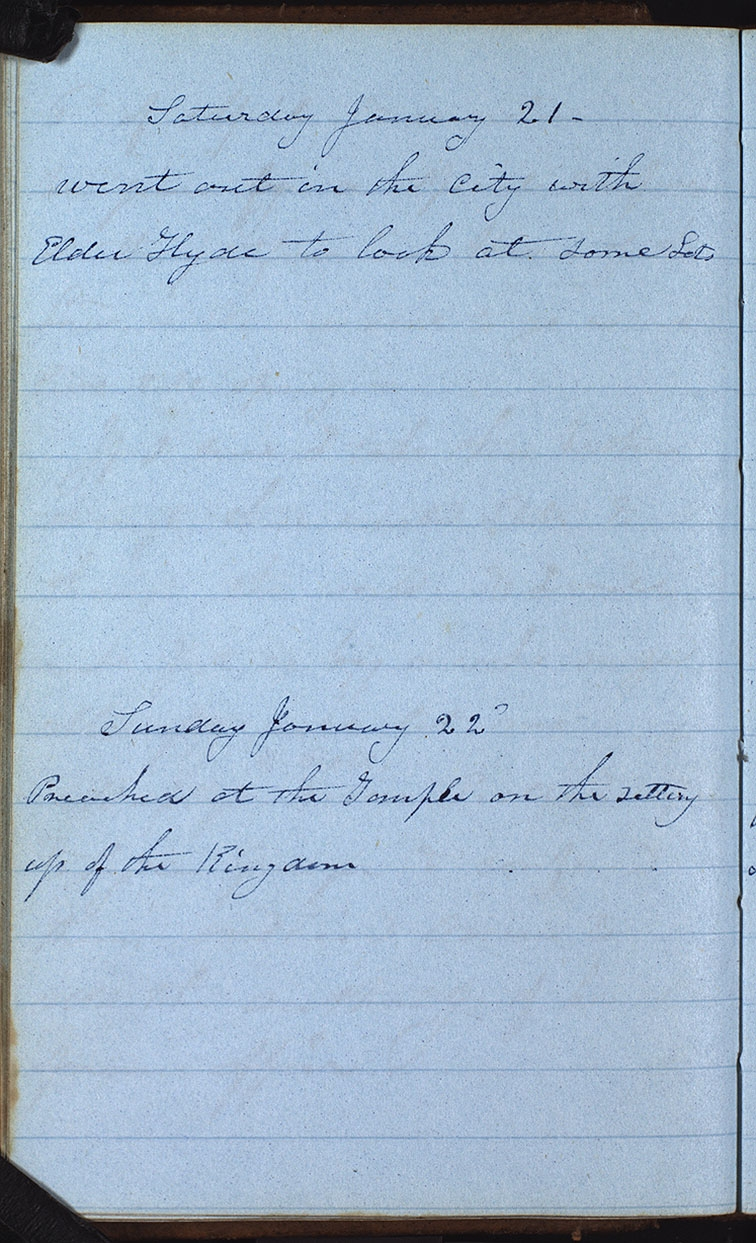 Saturday January 21 -
went out in the City with
Elder Hyde to look at some Lots
Sunday January 22
Preached at the Temple on the setting
up of the Kingdom